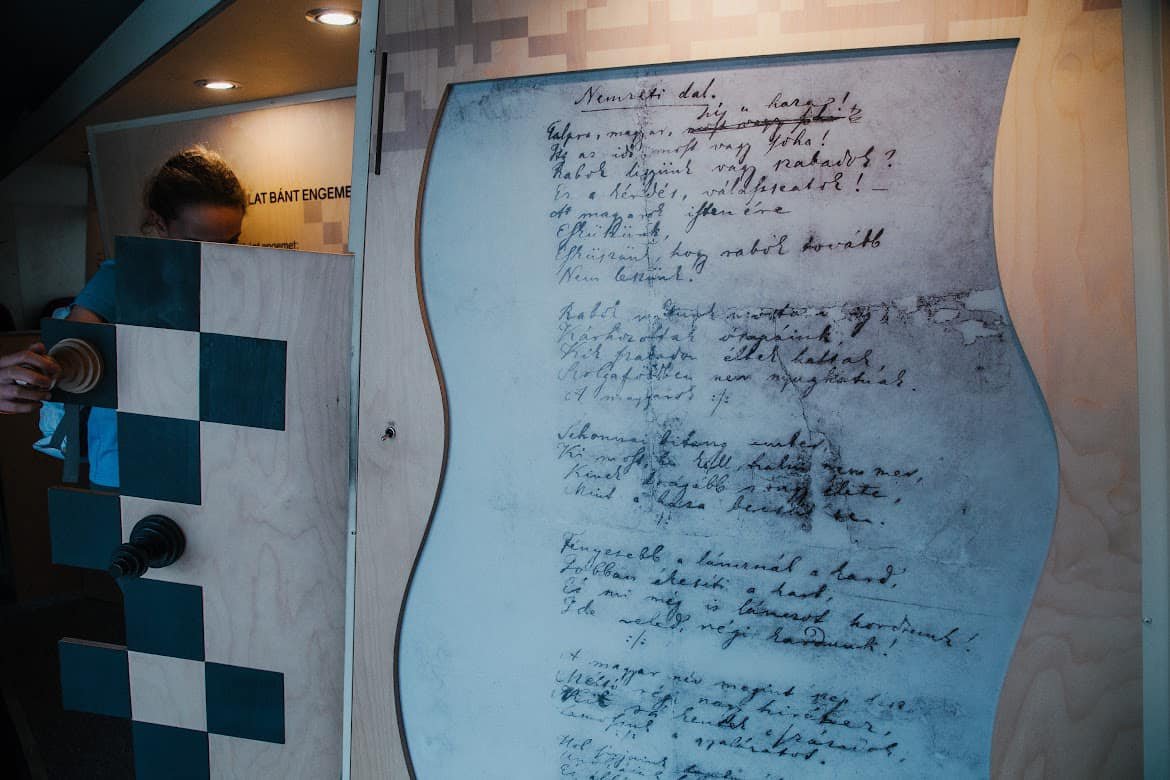 LAT BÁNT ENGEME
engemet:
Nemzeti dal.
híj a haza!
Talpra, magyar, most vagy soha!
Itt az idő, most vagy soha!
Rabok legyünk vagy szabadok?
Ez a kérdés, válasszatok! —
A magyarok istenére
Esküszünk,
Esküszünk, hogy rabok tovább
Nem leszünk.
Rabok voltunk mostanáig,
Kárhozottak ősapáink,
Kik szabadon éltek haltak,
Szolgaföldben nem nyughatnak.
A magyarok :/:
Sehonnai bitang ember,
Ki most, ha kell, halni nem mer,
Kinek drágább rongy élete,
Mint a haza becsülete.
:/:
Fényesebb a láncznál a kard,
Jobban ékesíti a kart,
És mi még is lánczot hordtunk!
Ide veled, régi kardunk!
:/:
A magyar név megint szép lesz,
Méltó régi nagy hiréhez,
Mit rá kentek a századok,
Lemossuk a gyalázatot.
Hol sírjaink